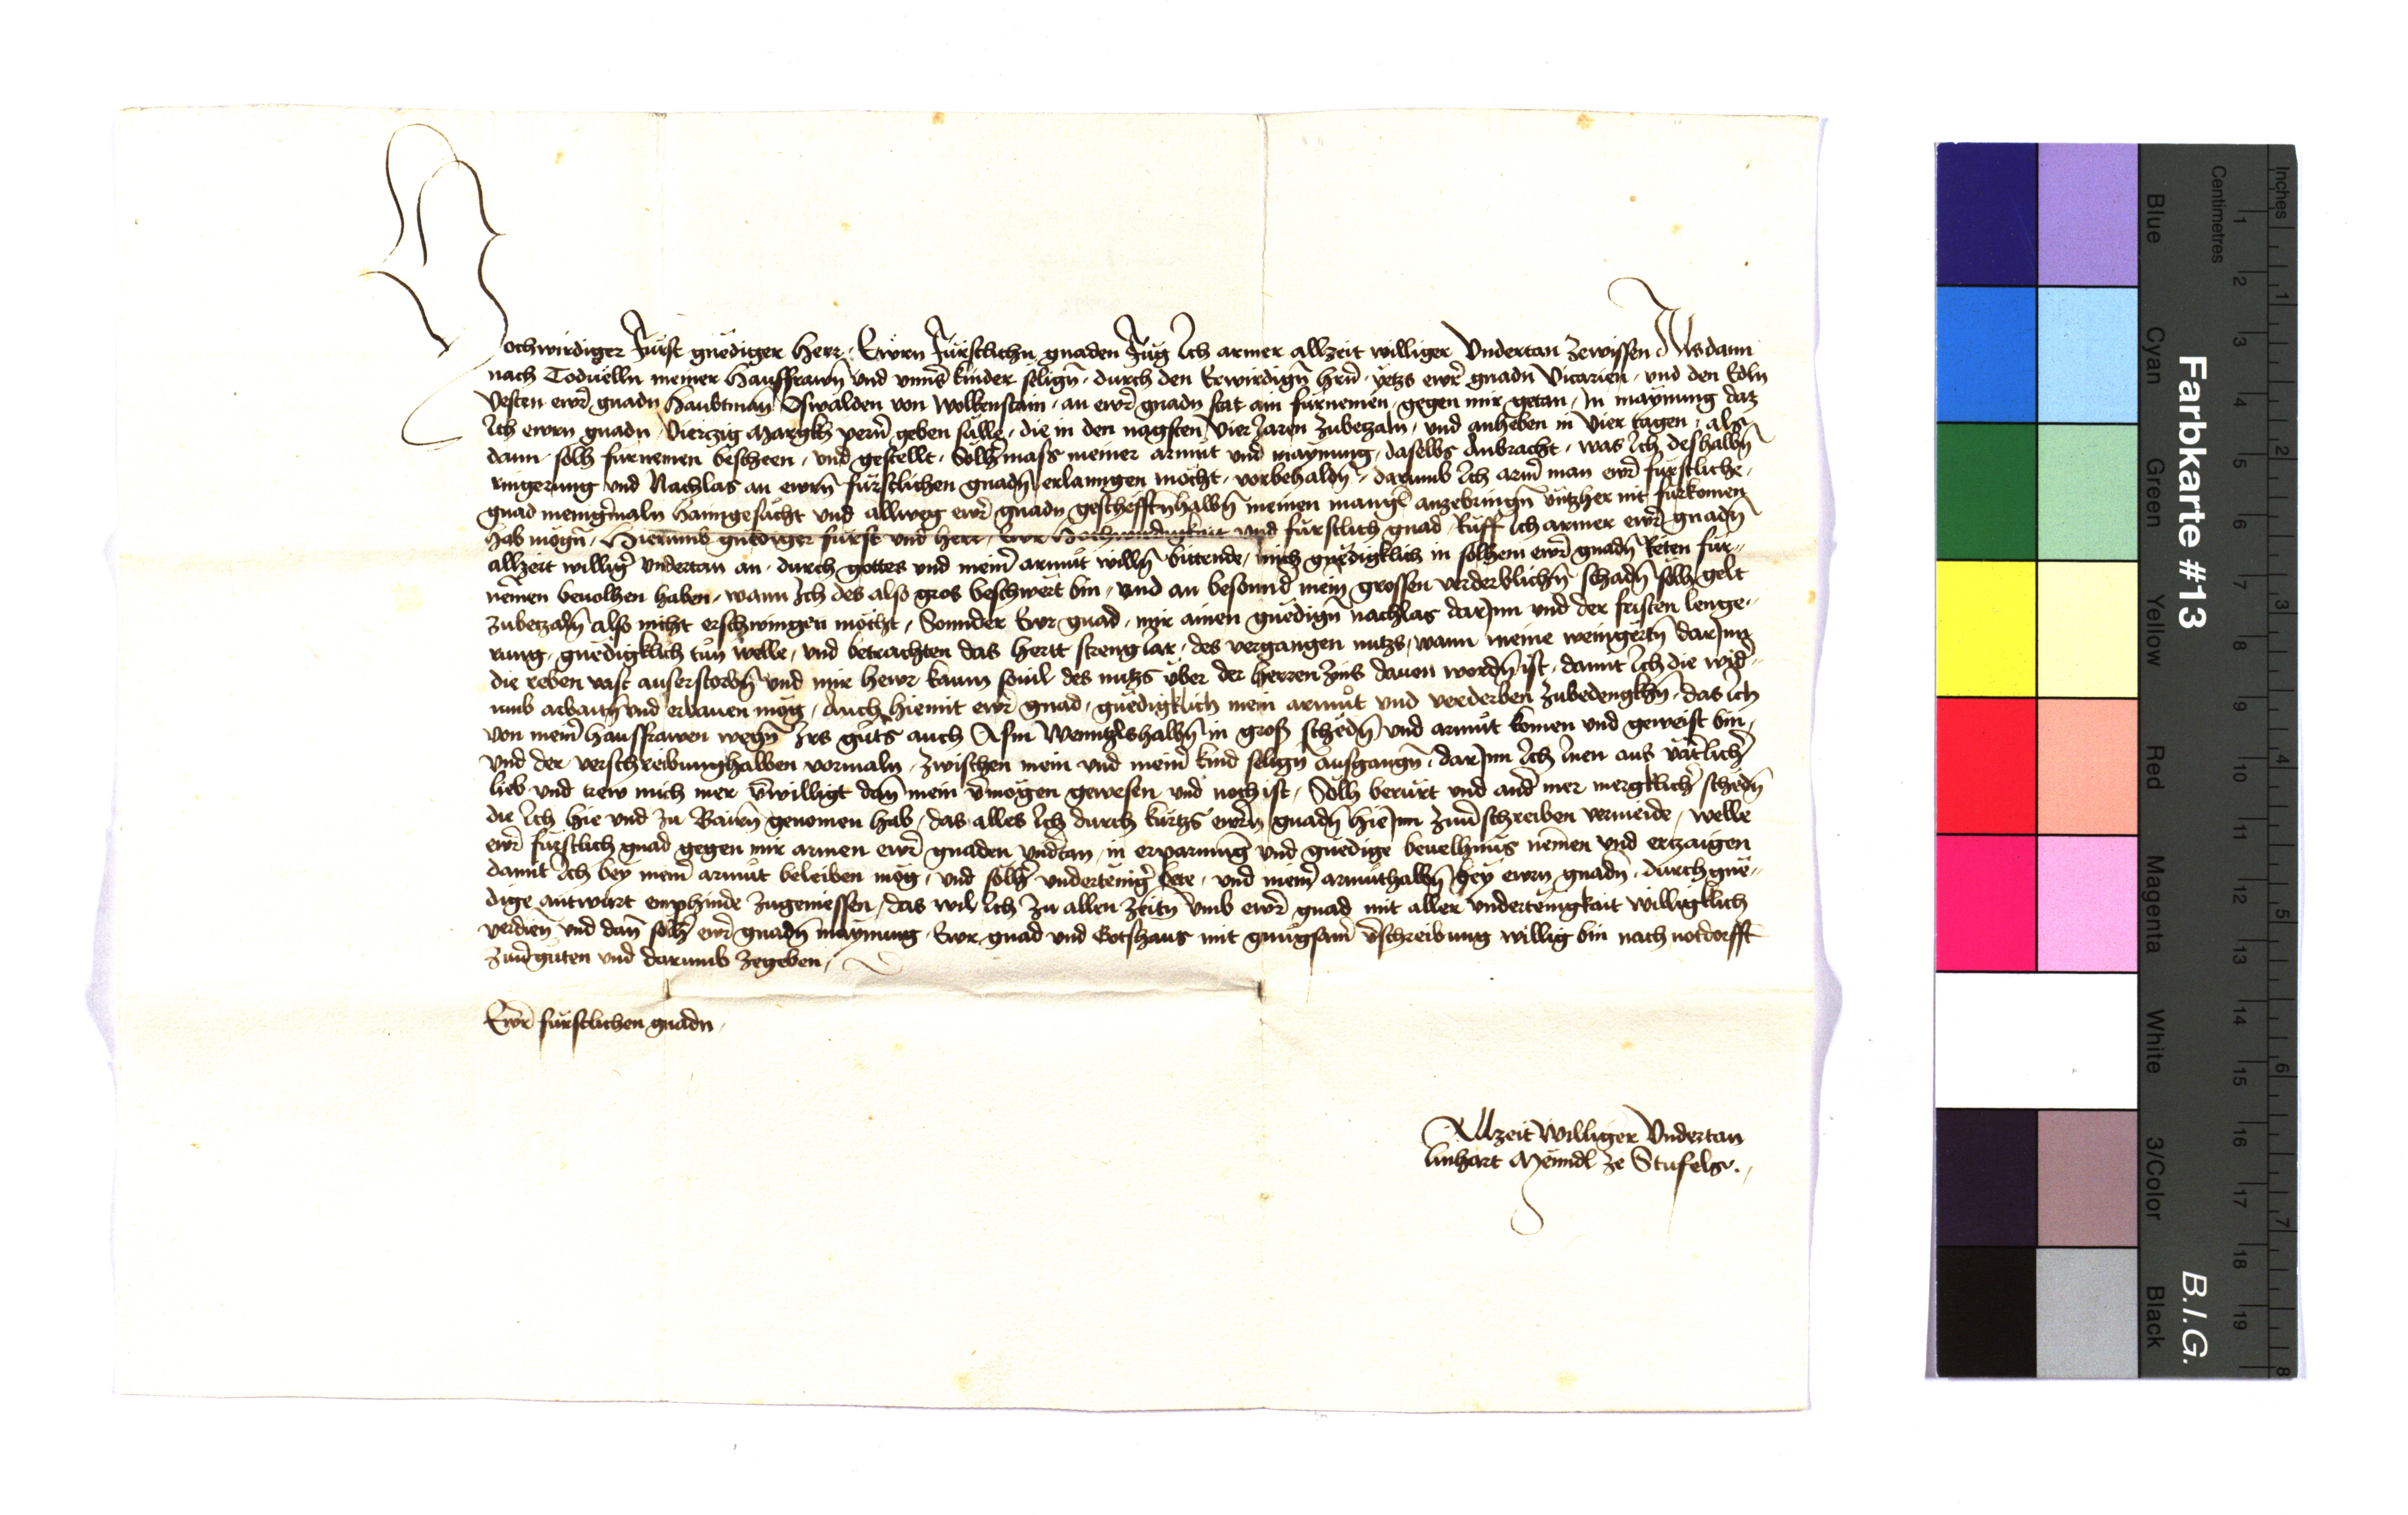 Hochwirdiger Fürst gnediger herr, Ewrn Fürstlichn gnaden Fug Ich armer allzeit williger Vndertan zewissen Als dann
nach Toduelln meiner Hauffrawn vnd vnns kinder selign, durch den Erwirdign hrn, yetzs ewr gnadn Vicarien, vnd den Edln
Vesten ewr gnadn haubtman Oswalden von Wolkenstain, an ewr gnadn stat ain fürnemen, gegen mir getan, In maynung daz
Ich ewrn gnadn, Vierczig Margkh pern geben sulle, die in den nagsten Vier Jaren zubetzaln, vnd anheben in Vier tagen, als
dann solh fürnemen bescheen, vnd gestellt, Solhmass meiner armut vnd maynung, daselbs Anbracht, was Ich deshalbn
ringerung vnd Nachlas an ewrn fürstlichen gnadn erlanngen möcht, vorbehaldn, darumb Ich arm man ewr fürstliche,
gnad menigmaln haimgesücht vnd allweg ewr gnadn gescheftnhalbn meinen mangl anzebringn üntzher nit fürkomen
hab mögn, Hierumb gnediger fürst vnd herr, Ewr Hochwirdigkait vnd fürstlich gnad, Ruff Ich armer ewr gnadn
allzeit willigr vndertan an, durch gottes vnd meinr armut willn bittende, mich gnedigklich in solhem ewr gnadn Reten für-
nemen beuolhen haben, wann Ich des also gros beschwert bin, vnd an besonnd mein grossen verderblichn schadn solh gelt
zubetzaln also nicht erschwingen möcht, Sonnder Ewr gnad, mir ainen gnedign nachlas darJnn vnd der fristen lenge-
rung, gnedigklich tun welle, vnd betrachten das hertt streng Jar, des vergangen nutzs, wann meine weingertn darJnn
die reben vast auserstorbn vnd mir hewr kaum souil des nutzs über der herren zins dauon wordn ist, damit Ich die wid-
umb arbaitn vnd erbauen mög, Auch hiemit ewr gnad, gnedigklich mein armut vnd verderben zubedengkhn, das ich
von meinr hausfrawen wegn Irs guts auch Asm Wenntzlshalbn in gross schedn vnd armut komen vnd geweist bin,
vnd der verschreibunghalben vormaln, zwischen mein vnd meinr kind selign ausgangn, darJnn Ich Inen aus vätlichr
lieb vnd trew mich mer vwilligt dan mein vmögen gewesen vnd noch ist, Solh berürt vnd andr mer mergklichr schedn
die Ich hie vnd zu Bairn genomen hab, das alles Ich durch kürtzs ewrn gnadn hieJnn zuuschreiben vermeide, welle
ewr fürstlich gnad gegen mir armen ewr gnaden vndtan, in erparmung vnd gnedige beuelhnus nemen vnd ertzaigen
damit Ich bey meinr armut beleiben mög, vnd solhr vndertenigr bete, vnd meinr armuthalbn bey ewrn gnadn, durch gne-
dige antwurt emphinde zugeniessen, das wil Ich zu allen zeitn vmb ewr gnad mit aller vndertenigkait willigklich
verdien vnd dan solh ewr gnadn maynung Ewr gnad vnd Gotshaus mit gnugsamr vschreibung willig bin nach notdorfft
zuuerguten vnd darumb zegeben,
Ewr fürstlichen gnadn,
Allzeit Williger Vndertan
linhart Meindl ze Stufels.